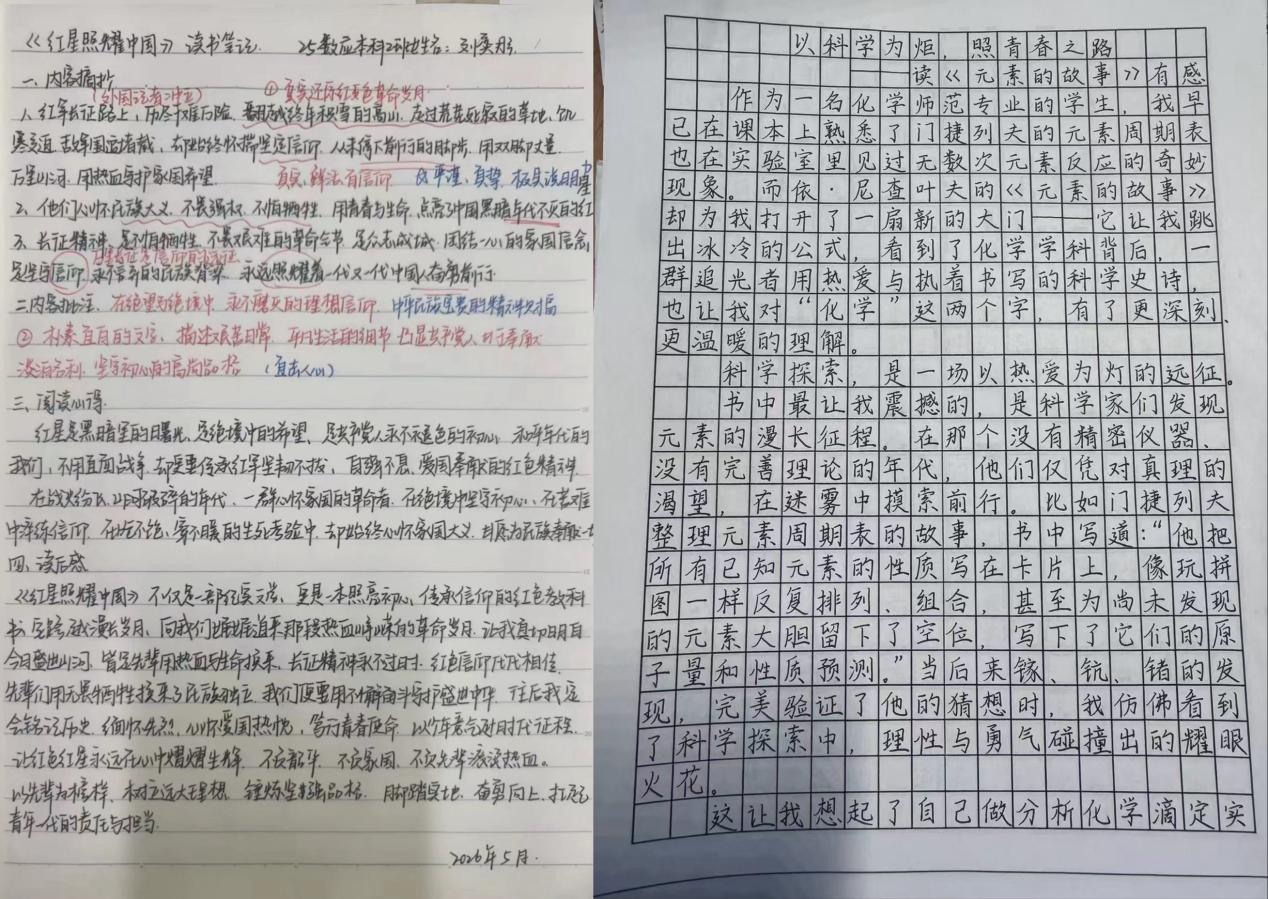 《红星照耀中国》读书笔记 25数应本科2班
一、内容摘抄
(外国记者:冲击) ①真实还原红色革命岁月
1、红军长征路上,历尽千难万险,翻越终年积雪的高山,走过荒芜死寂的草地,饥
寒交迫,敌军围追堵截,却始终怀揣坚定信仰,从未停下前行的脚步,用双脚丈量
万里山河,用热血守护家国希望。 真实,鲜活,有信仰
2、他们心怀民族大义,不畏强权,不怕牺牲,用青春与生命,点亮了中国黑暗年代不灭的红
3、长征精神,是不怕牺牲、不畏艰难的革命气节,是众志成城、团结一心的家国信念,
是坚定信仰、永不言弃的民族脊梁,永远照耀着一代又一代中国人奋勇前行
二、内容批注:在绝望的绝境中,永不磨灭的理想信仰,中华民族宝贵的精神财富
②朴素直白的文字,描述艰苦日常,平凡生活的细节,凸显共产党人甘于奉献
淡泊名利、坚守初心的高尚品格 (直击人心)
三、阅读心得
红星是黑暗里的曙光,是绝境中的希望,是共产党人永不褪色的初心,和平年代的
我们,不用直面战争,却更要传承红军坚韧不拔、自强不息、爱国奉献的红色精神
在战火纷飞、山河破碎的年代,一群心怀家国的革命者,在绝境中坚守初心,在苦难
中淬炼信仰,在吃不饱、穿不暖的生死考验中,却始终心怀家国大义,甘愿为民族奉献一切
四、读后感
《红星照耀中国》不仅是一部纪实文学,更是一本照亮初心、传承信仰的红色教科
书,它跨越漫长岁月,向我们娓娓道来那段热血峥嵘的革命岁月,让我真切明白
今日盛世山河,皆是先辈用热血与生命换来,长征精神永不过时,红色信仰代代相传
先辈们用无畏牺牲换来了民族独立,我们便要用不懈奋斗守护盛世中华,往后我定
会铭记历史,缅怀先烈,心怀爱国热忱,笃行青春使命,以少年意气赴时代征程,
让红色红星永远在心中熠熠生辉,不负韶华,不负家国,不负先辈滚滚热血。
以先辈为榜样,树立远大理想,锤炼坚强品格,脚踏实地,奋勇向上,扛起
青年一代的责任与担当。
2026年5月.
以科学为炬,照青春之路
——读《元素的故事》有感
作为一名化学师范专业的学生,我早
已在课本上熟悉了门捷列夫的元素周期表
也在实验室里见过无数次元素反应的奇妙
现象。而依·尼查叶夫的《元素的故事》
却为我打开了一扇新的大门——它让我跳
出冰冷的公式,看到了化学学科背后,一
群追光者用热爱与执着书写的科学史诗,
也让我对“化学”这两个字,有了更深刻、
更温暖的理解。
科学探索,是一场以热爱为灯的远征。
书中最让我震撼的,是科学家们发现
元素的漫长征程。在那个没有精密仪器、
没有完善理论的年代,他们仅凭对真理的
渴望,在迷雾中摸索前行。比如门捷列夫
整理元素周期表的故事,书中写道:“他把
所有已知元素的性质写在卡片上,像玩拼
图一样反复排列、组合,甚至为尚未发现
的元素大胆留下了空位,写下了它们的原
子量和性质预测。”当后来镓、钪、锗的发
现,完美验证了他的猜想时,我仿佛看到
了科学探索中,理性与勇气碰撞出的耀眼
火花。
这让我想起了自己做分析化学滴定实